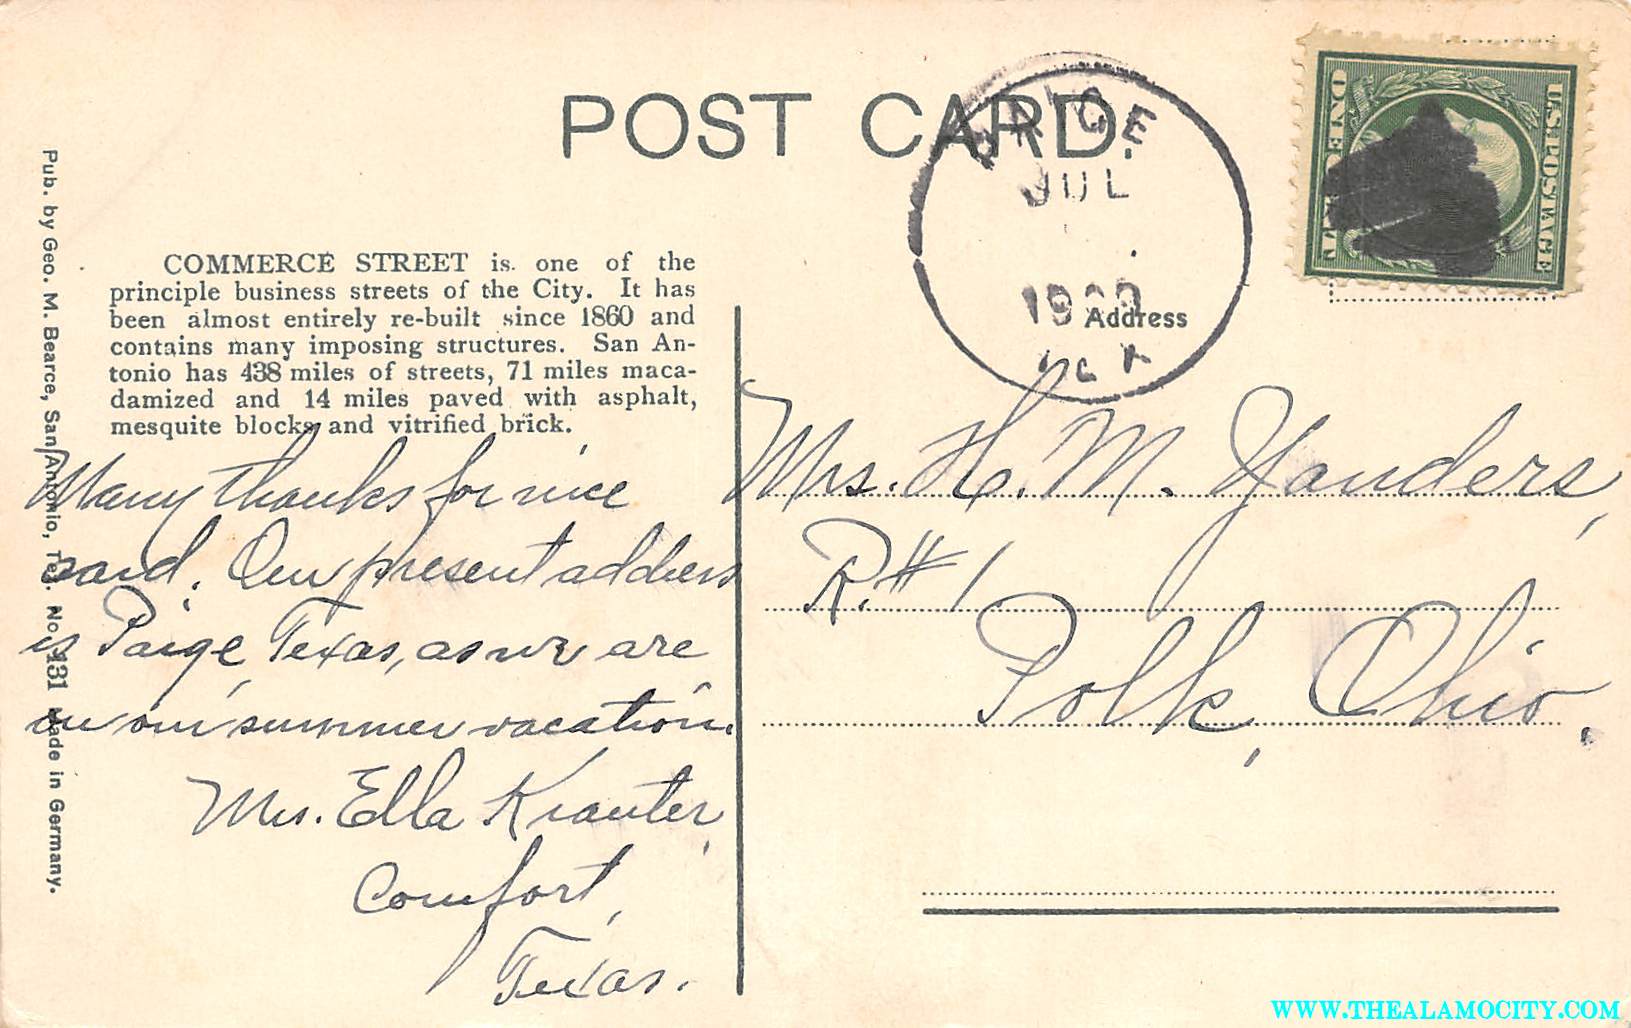 POST CARD.
PAIGE
JUL
TEX
U.S. POSTAGE
ONE CENT
Pub. by Geo. M. Bearce, San Antonio, Tex. No. 131 Made in Germany.
COMMERCE STREET is one of the
principle business streets of the City. It has
been almost entirely re-built since 1860 and
contains many imposing structures. San An-
tonio has 438 miles of streets, 71 miles maca-
damized and 14 miles paved with asphalt,
mesquite blocks and vitrified brick.
Many thanks for nice
card. Our present address
is Paige, Texas, as we are
on our summer vacation.
Mrs. Ella Krauter,
Comfort,
Texas.
Address
Mrs. H. M. Yanders,
R. # 1
Polk, Ohio.
WWW.THEALAMOCITY.COM